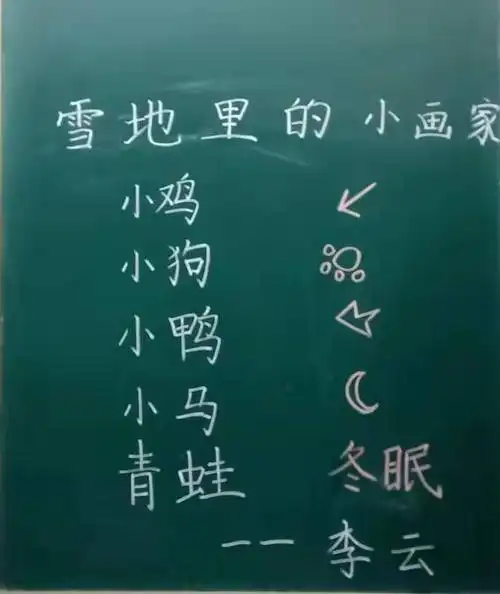 雪地里的小画家
小鸡
小狗
小鸭
小马
青蛙 冬眠
——李云